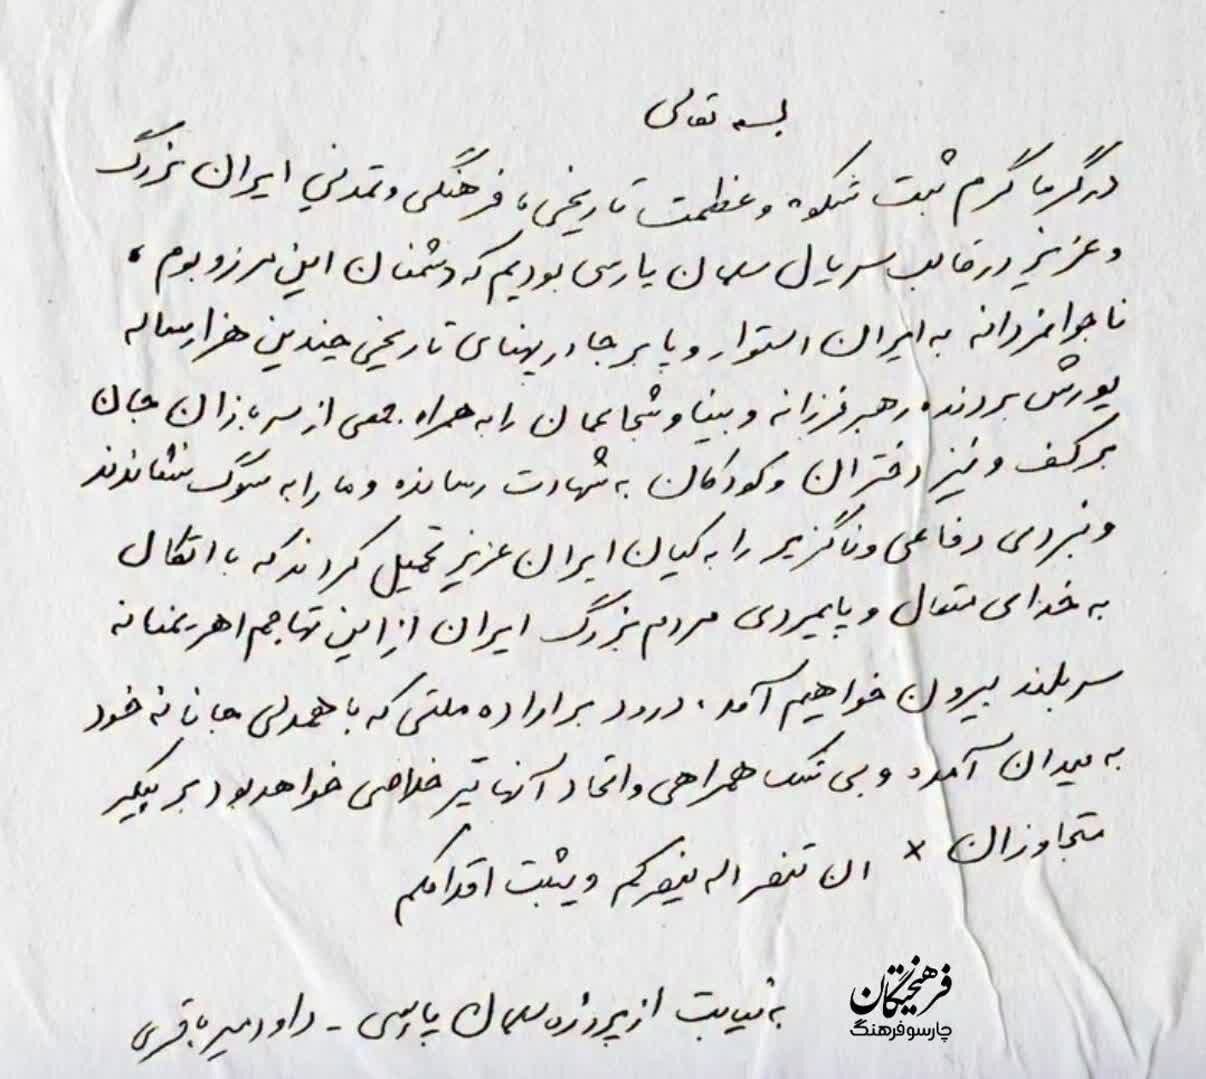 بسمه تعالی
در گرما گرم ثبت شکوه و عظمت تاریخی، فرهنگی و تمدنی ایران بزرگ
و عزیز در قالب سریال سلمان پارسی بودیم که دشمنان این مرز و بوم ،
ناجوانمردانه به ایران استوار و پابرجا در پهنای تاریخی چندین هزار ساله
یورش بردند، رهبر فرزانه و بینا و شجاعمان را به همراه جمعی از سربازان جان
بر کف و نیز دختران و کودکان به شهادت رسانده و ما را به سوگ نشاندند
و نبردی دفاعی و ناگزیر را به کیان ایران عزیز تحمیل کردند که با اتکال
به خدای متعال و پایمردی مردم بزرگ ایران از این تهاجم اهریمنانه
سربلند بیرون خواهیم آمد. درود بر اراده ملتی که با همدلی جانانه خود
به میدان آمده و بی شک همراهی و اتحاد آنها تیر خلاصی خواهد بود بر پیکر
متجاوزان × ان تنصر اله ینصرکم و یثبت اقدامکم
به نیابت از پروژه سلمان پارسی - داود میرباقری
فرهیختگان
چارسو فرهنگ